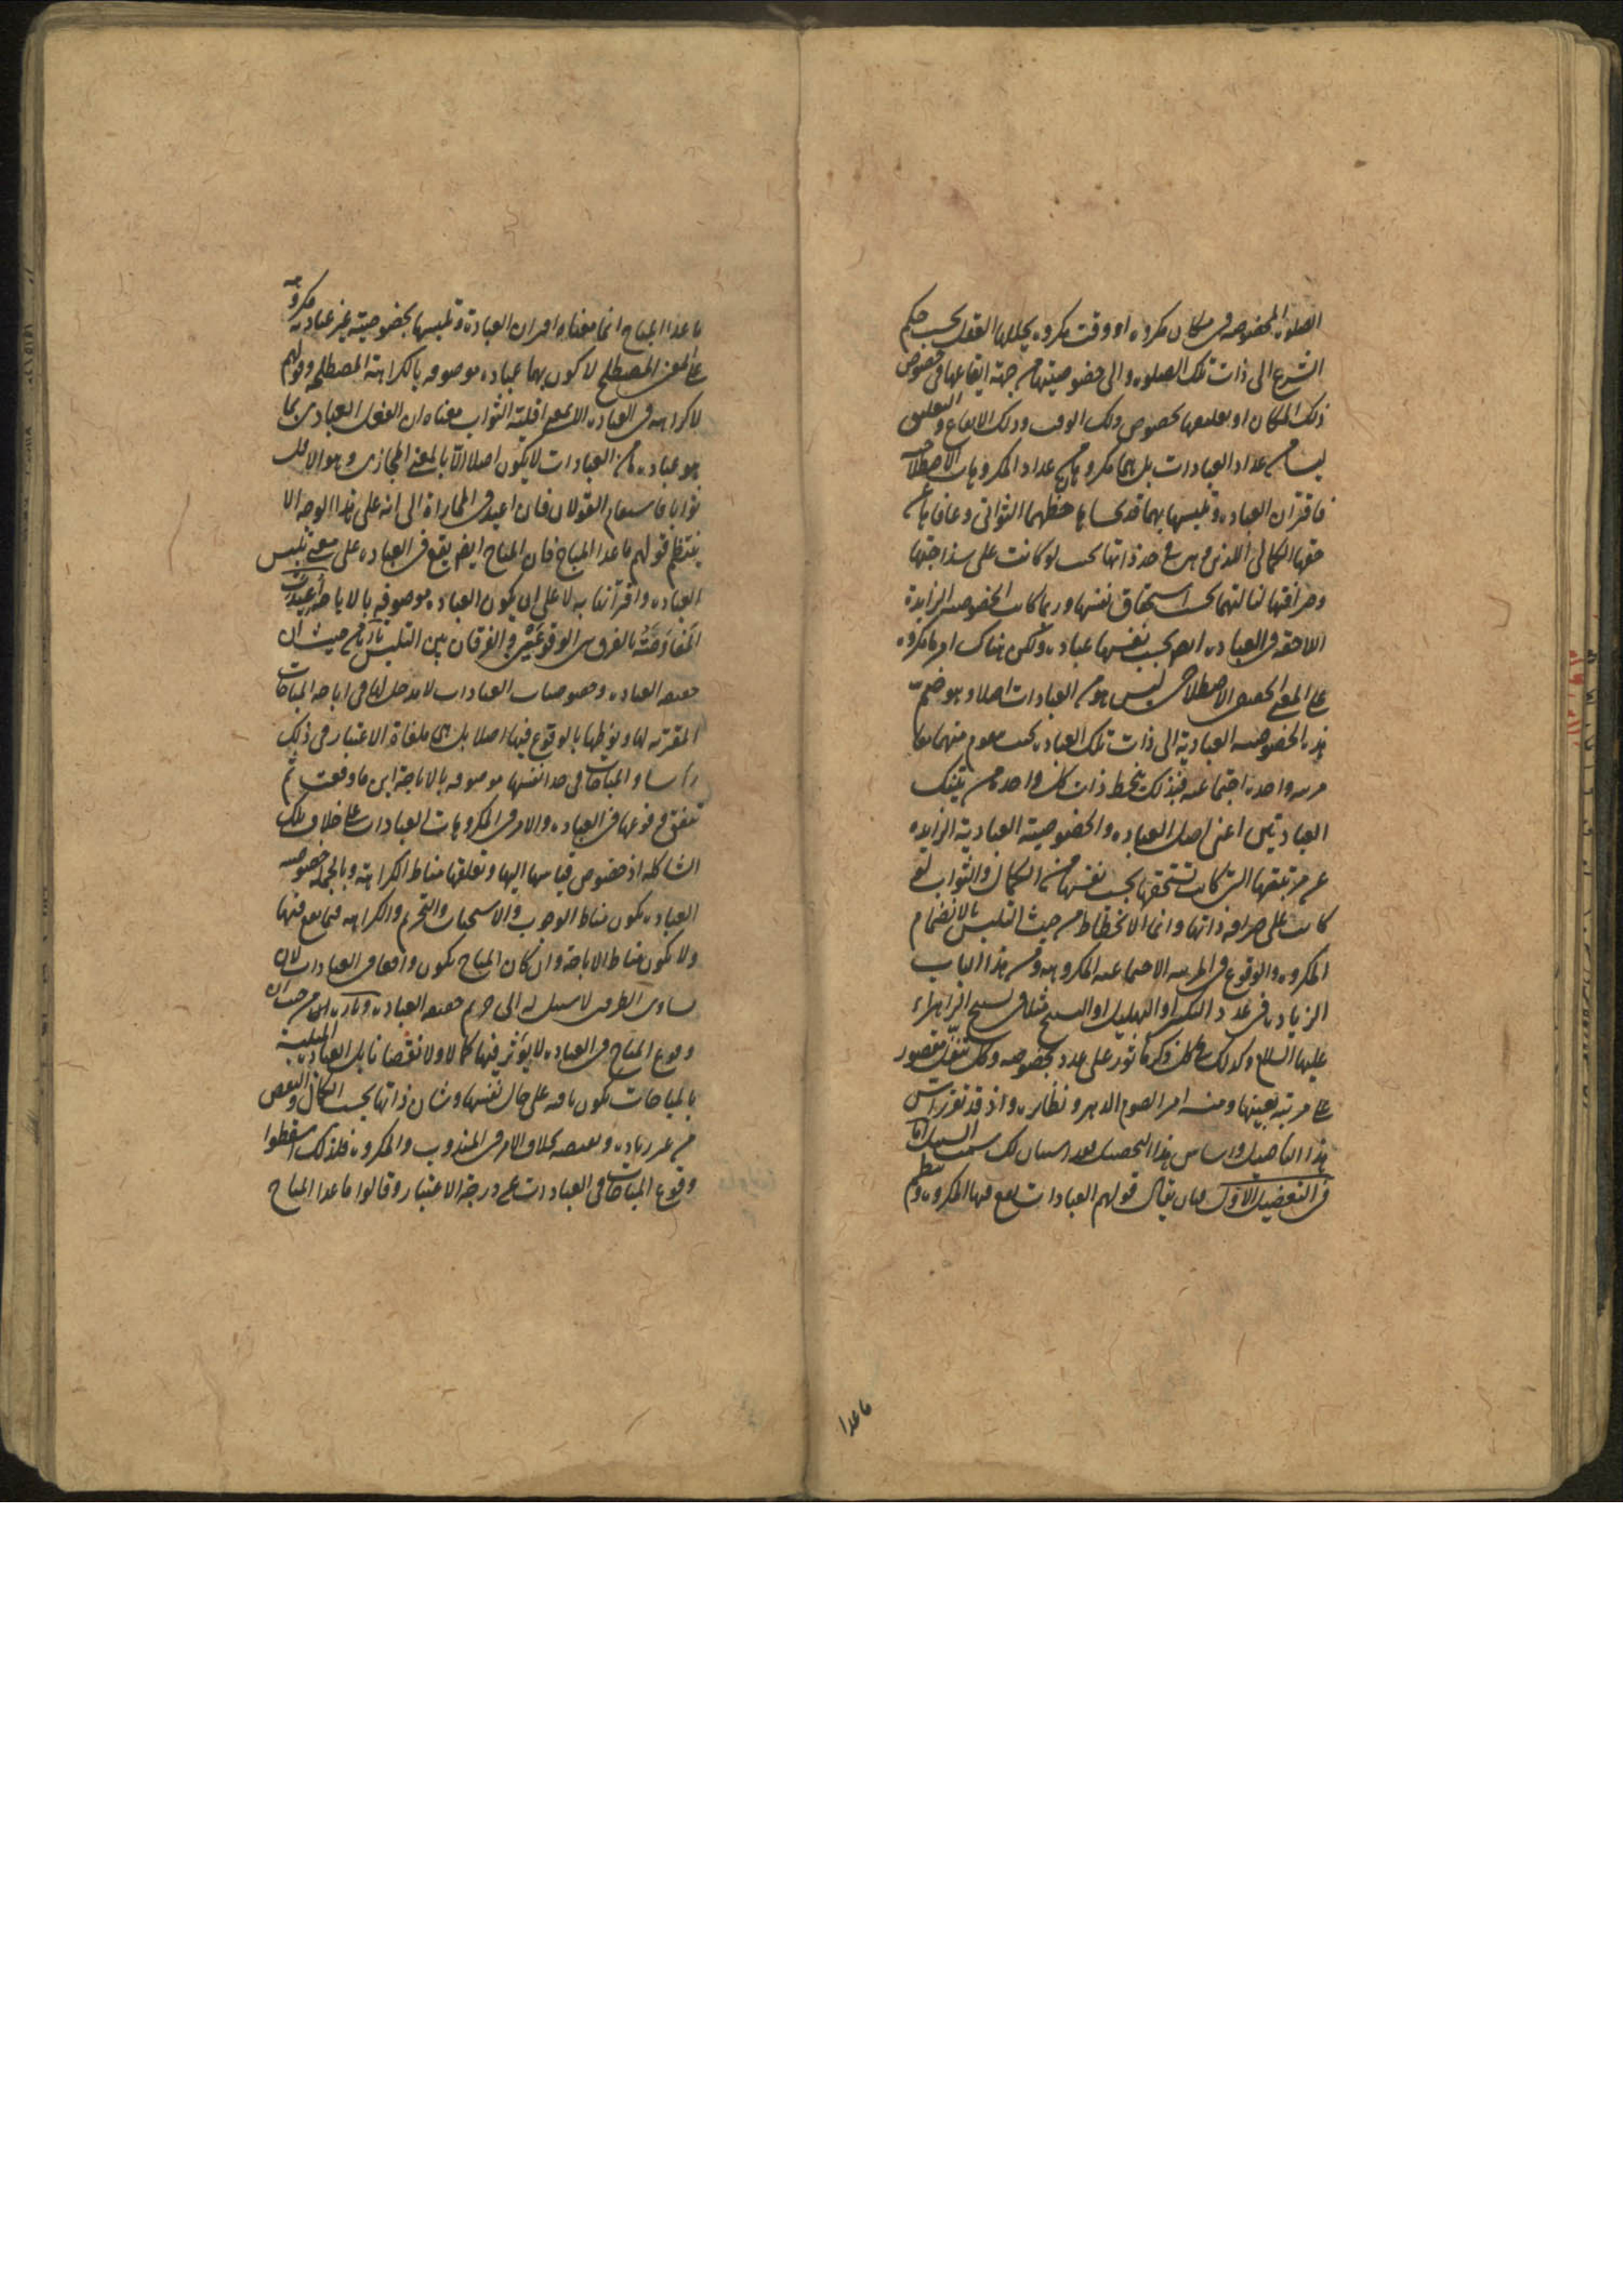 الصلوة المخصوصه فى مكان مكروه او وقت مكروه يحللها العقل بحسب حكم
الشرع الى ذات تلك الصلوه والى خصوصيتها من جهة ايقاعها فى خصوص
ذلك المكان او تعليقها بخصوص ذلك الوقت وذلك الايقاع والتعليق
ليسا من عداد العبادات بل هما مكروهان من عداد المكروهات الاصطلاحيه
فاقتران العباده وتلبسها بهما قد
حقها الكمالى اللذين هى فى حد ذاتها بحيث لو كانت على سذاجتها
وصرافتها لنالتهما بحسب استحقاق نفسها وربما كانت الخصوصيه الزايدة
اللاحقه فى العباده ايضا بحسب نفسها عباده ولكن هناك امر ما مكروه
على المعنى الحقيقى الاصطلاحى ليس هو من العبادات اصلا وهو ضمّ
هذه الخصوصيه العبادية الى ذات تلك العباده بحيث منهما معا
مرتبه واحده اجتماعيه فبذلك ينحط ذات كل واحد من تينك
العبادتين اعنى اصل العباده والخصوصية العبادية الزايده
عن مرتبتها التى كانت تستحقها بحسب نفسها من الكمال والثواب لو
كانت على صرافه ذاتها وانما الانحطاط من حيث التلبس بالانضمام
المكروه والوقوع فى المرتبه الاجتماعيه المكروهه ومن هذا الباب
الزياده فى عدد التكبير او التهليل او التسبيح مثلا فى تسبيح الزهراء
عليها السلام وكذلك فى كل ذكر ماثور على عدد بخصوصه وكل تنفل مقصور
على مرتبة بعينها ومنه امر الصوم الدهر ونظايره واذ قد تقرر
هذا التاصيل واساس هذا التحصيل فقد استبان لك سمت السبيل اما
فى التفضيل الاول فبان يقال قولهم العبادات يقع فيها المكروه و
ما عدا
ما عدا المباح انما معناه اقتران العبادة وتلبسها بخصوصية غير عبادية مكروهه
على المعنى المصطلح لا كون بها عباده موصوفه بالكراهة المصطلحه وقولهم
لا كراهه فى العباده الا بمعنى اقلية الثواب معناه ان الفعل العبادى بما
هو عباده من العبادات لا يكون اصلا الا بالمعنى المجازى وهو الاقل
ثوابا فاستقام القولان فان اعيد فى المماراة الى انه على هذا الوجه الا
ينتظم قولهم ما عدا المباح فان المباح ايضا يقع فى العباده على معنى تلبس
العباده واقترانها به لا على ان يكون العباده موصوفه بالاباحة اعيدت
المفاوضة بالفرق بين الوقوعين والفرقان بين التلبسين من حيث ان
حقيقه العباده وخصوصيات العبادات لا مدخل لها فى اباحه المباحات
المقترنه لها ونوطها بالوقوع فيها اصلا بل هى ملغاة الاعتبار فى ذلك
راسا والمباحات فى حد انفسها موصوفه بالاباحة اين ما وقعت ثم
تتفق وقوعها فى العباده والامر فى المكروهات العبادات على خلاف تلك
الشاكله اذ خصوص قياسها اليها وتعلقها مناط الكراهة وبالجمله خصوصيه
العباده يكون مناط الوجوب والاستحباب والتحريم والكراهه فيما يقع فيها
ولا يكون مناط الاباحة وان كان المباح يكون واقعا فى العبادات لان
تساوى الطرفين لا سبيل له الى حريم حقيقه العباده وتاره اخرى من حيث ان
وقوع المباح فى العباده لا يوثر فيها كمالا ولا نقصانا بل العباده المتلبسه
بالمباحات تكون باقيه على حال نفسها وشان ذاتها بحسب الكمال والنقص
من غير زياده ونقيصه بخلاف الامر فى المندوب والمكروه فلذلك اسقطوا
وقوع المباحات فى العبادات عن درجة الاعتبار وقالوا ما عدا المباح